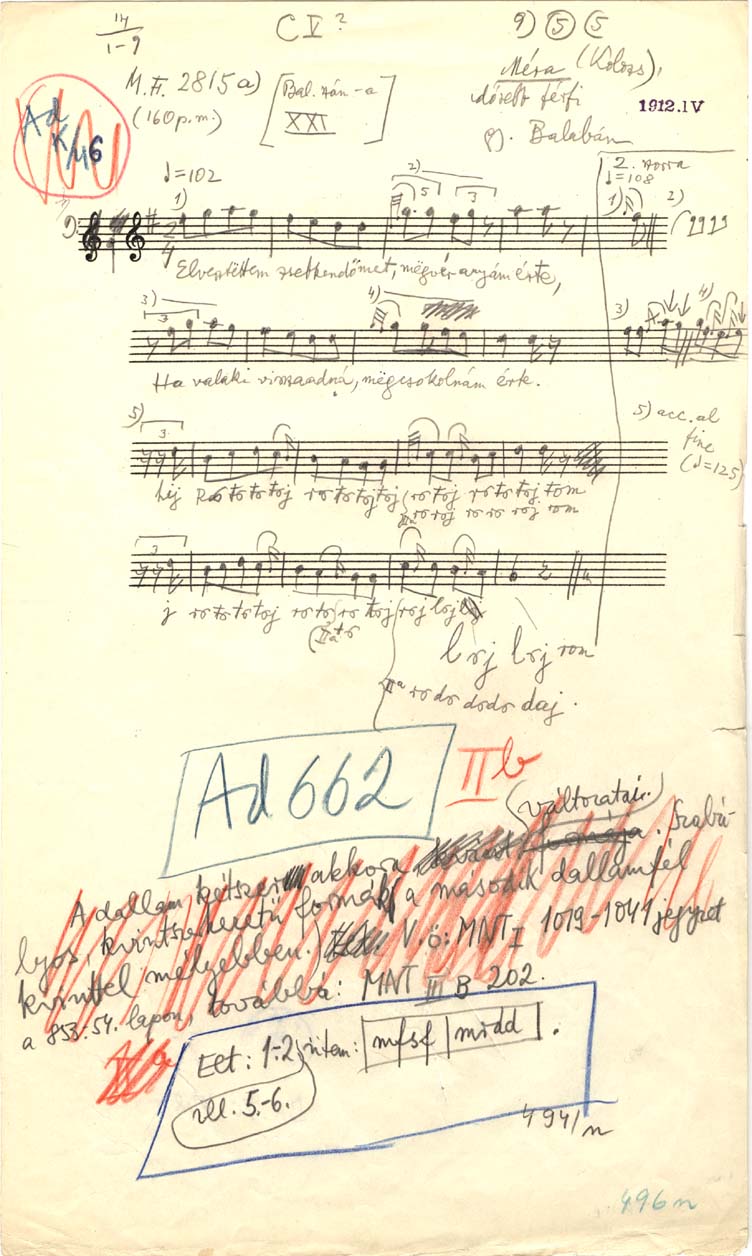 14/1-9
C V ?
9) ⑤ ⑤
M.F. 2815a)
(160 p.m.)
[Bal. szán-a
XXI]
Méra (Kolozs),
idősebb férfi
gy. Balabán
1912.IV
Ad
♩=102
2. strófa
♩=108
1) 2) 5 3
1) 2)
Elvesztettem zsebkendőmet, megvér anyám érte,
3) 3 4)
3) 4)
Ha valaki visszaadná, mëgcsokolnám érte.
5) 3
5) acc. al
fine
(♩=125)
hij Ro to to toj ro to toj toj ro toj ro to toj tom
IIa ro roj ro ro roj rom
3
j ro to to toj ro to ro toj roj loj
IIa to
loj loj rom
IIa ro do dodo daj.
Ad 662
IIb
változatai.
A dallam kétszer akkora . Szabá-
lyos, kvintszerkezetű formák, a második dallamfél
kvinttel mélyebben. V.ö: MNT I 1019-1041 jegyzet
a 853-54. lapon, továbbá: MNT III B 202.
Eet: 1-2 ütem: |mfsf|mrdd|.
ill. 5-6.
494/n
496n